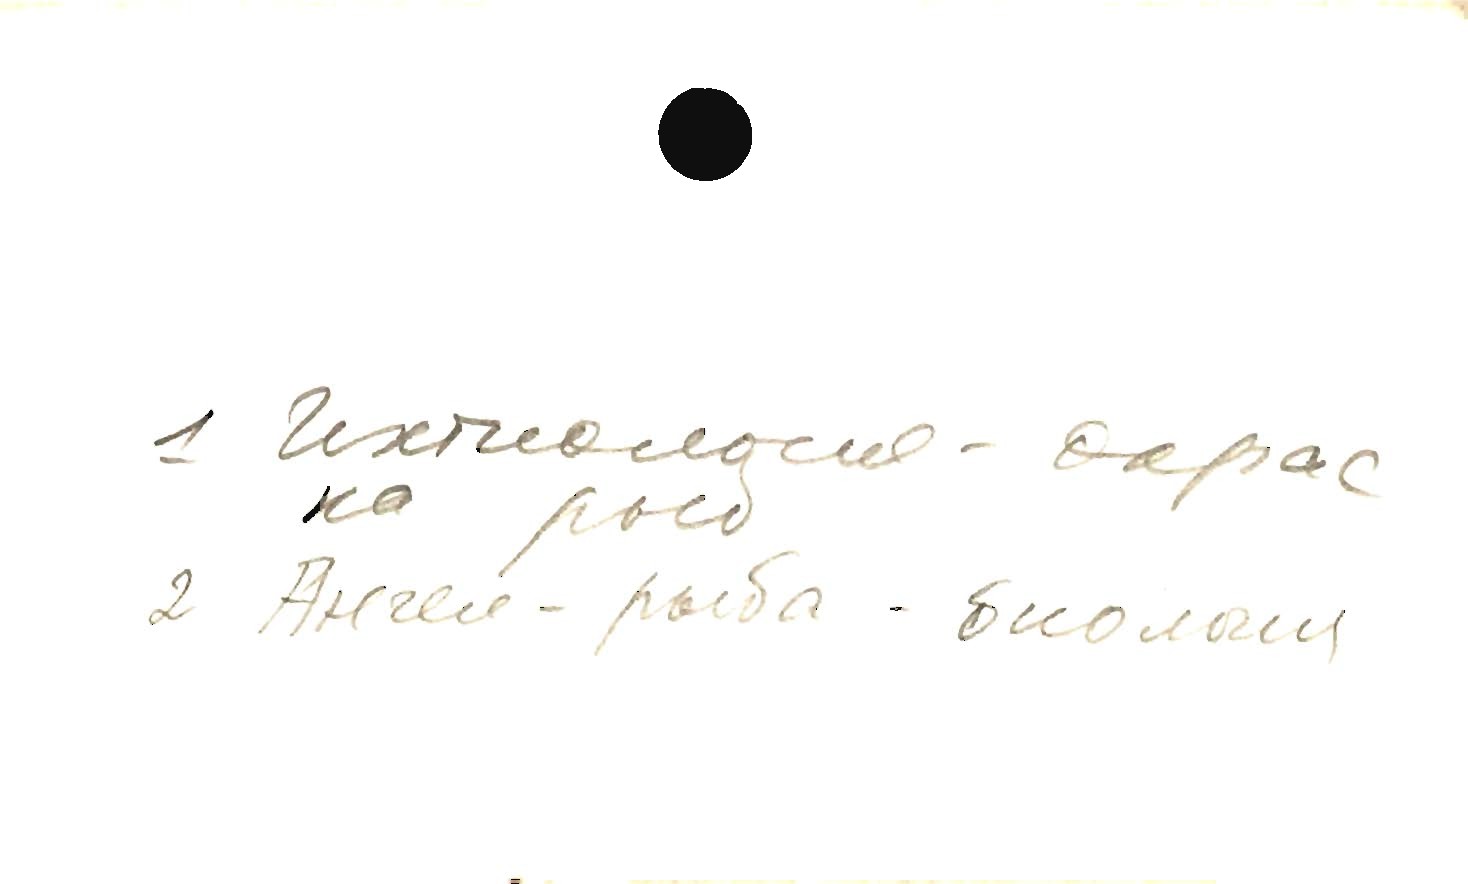 1 Ихтиология - окрас
ка рыб
2 Ангел - рыба - биология